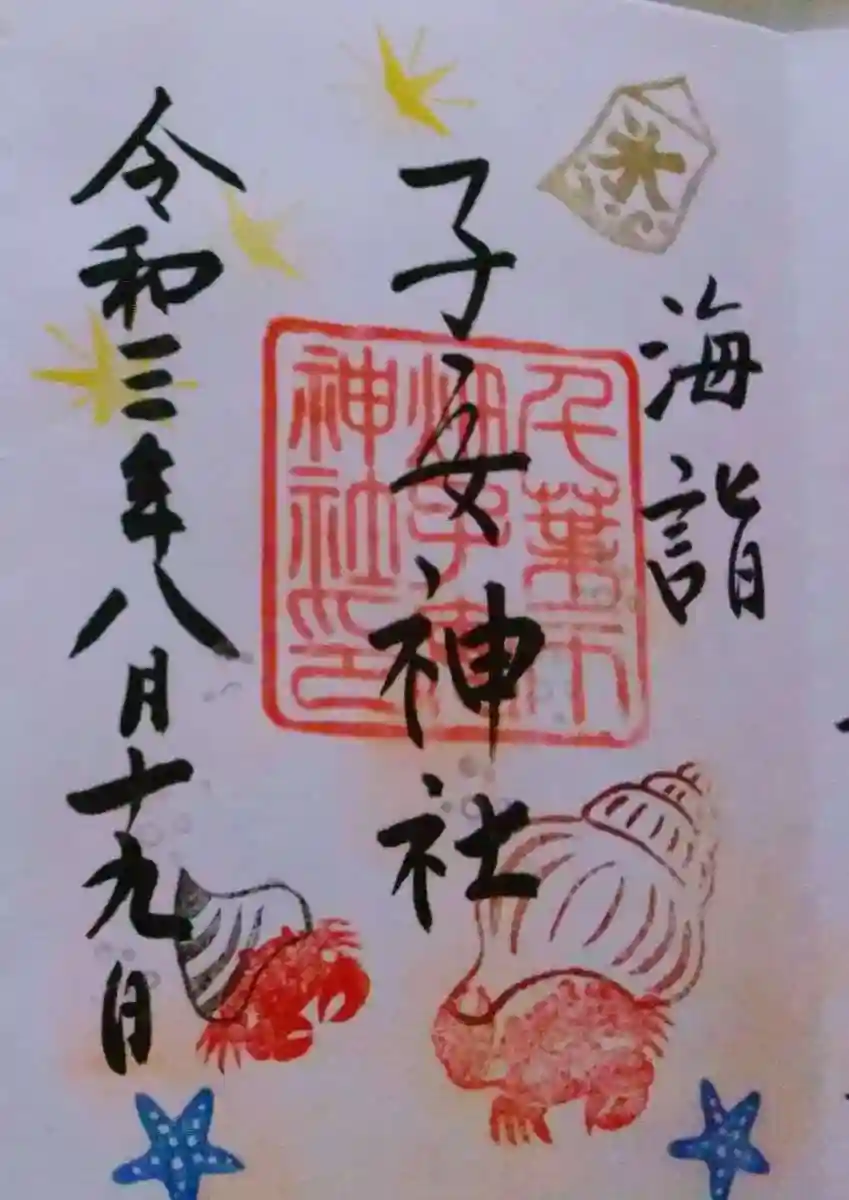 海詣
子安神社
千葉市
畑子安
神社印
令和三年八月十九日